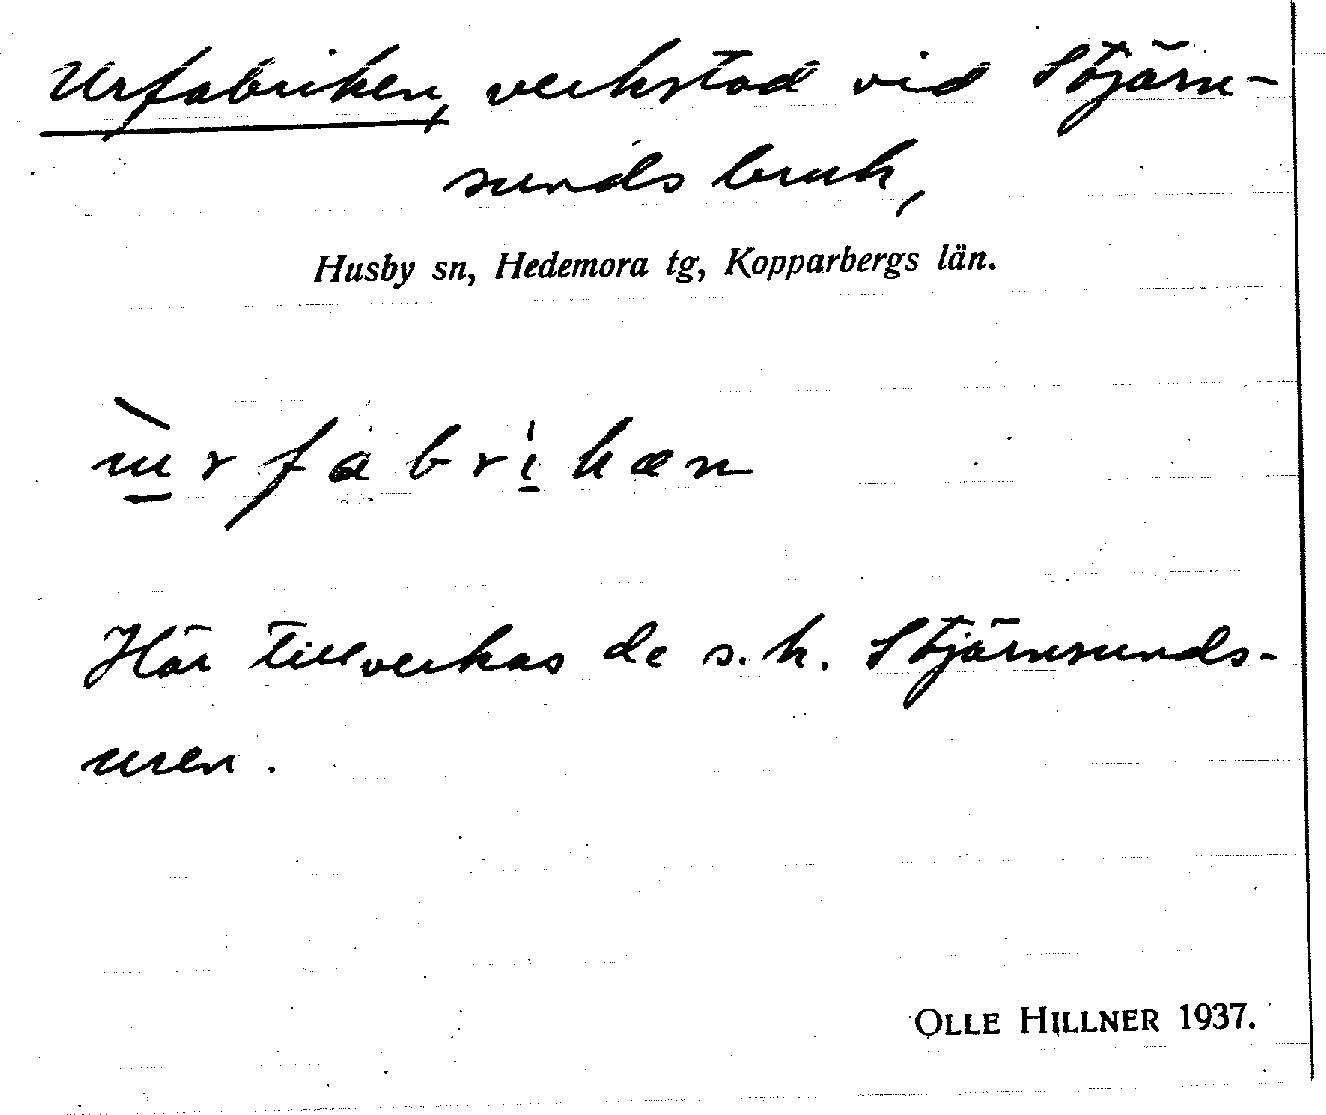 Urfabriken, verkstad vid Stjärn-
sunds bruk,
Husby sn, Hedemora tg, Kopparbergs län.
ɯ̀rfabrikæn
Här tillverkas de s.k. Stjärnsunds-
uren.
OLLE HILLNER 1937.